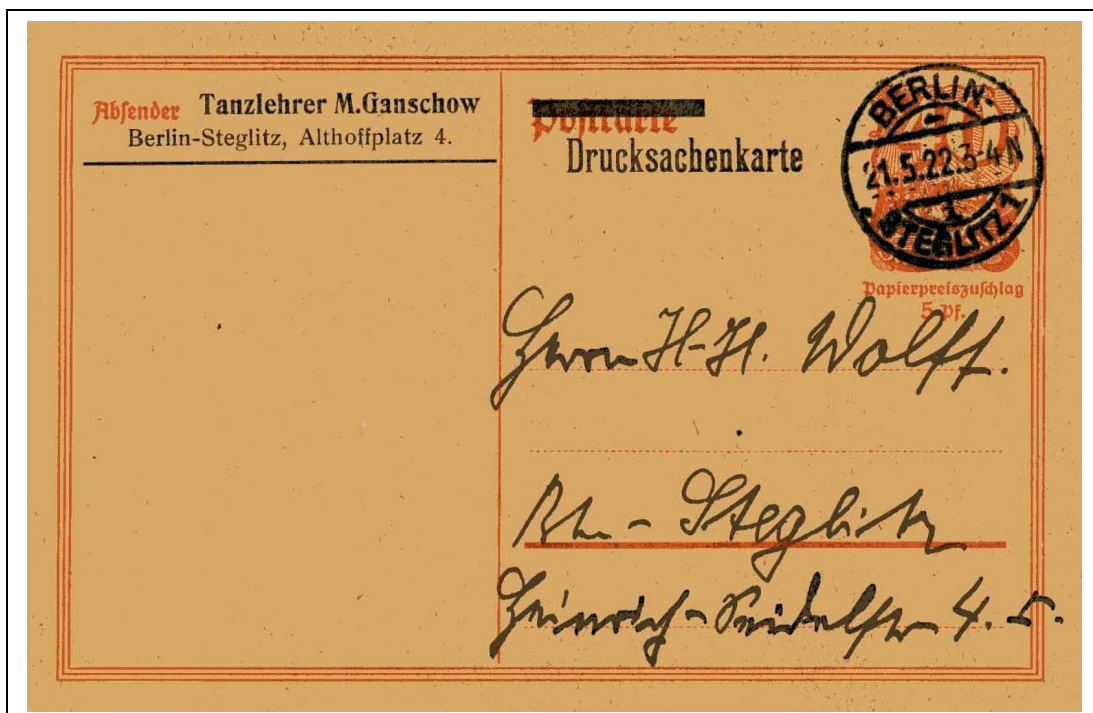 Absender Tanzlehrer M.Ganschow
Berlin-Steglitz, Althoffplatz 4.
Postkarte
Drucksachenkarte
BERLIN-
21.5.22.3-4N
STEGLITZ 1
Papierpreiszuschlag
5 Pf.
Herrn H-H. Wolff.
Bln - Steglitz
Heinrich-Seidelstr 4. I.